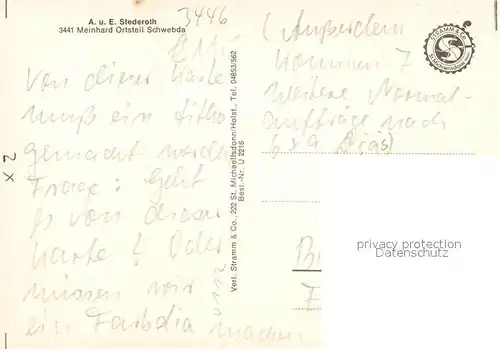 A. u. E. Stederoth
3441 Meinhard Ortsteil Schwebda
3446
Von dieser Karte
muß ein Litho
gemacht werden
Frage: Geht
es von dieser
Karte? Oder
müssen wir
ein Farbdia machen
2 x
(Außerdem
kommen 7
weitere Normal-
aufträge nach
6x9 Dias)
Verl. Stramm & Co., 222 St. Michaelisdonn/Holst., Tel. 04853/562
Best.-Nr. U 2216
STRAMM & Co
St. Michaelisdonn
privacy protection